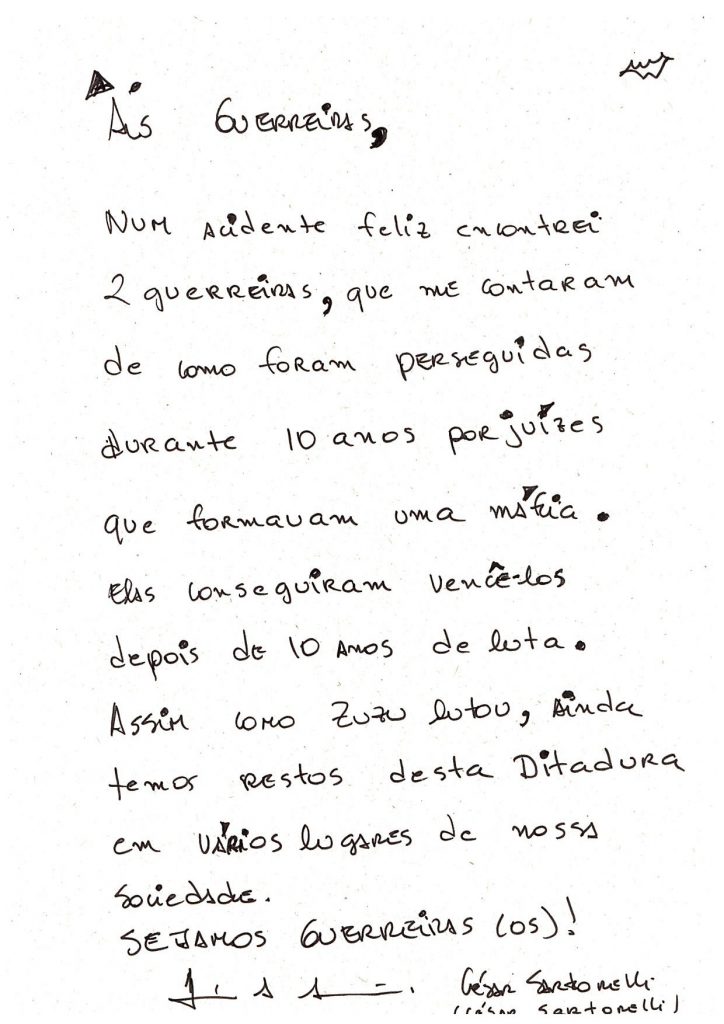 Às Guerreiras,
Num acidente feliz encontrei
2 guerreiras, que me contaram
de como foram perseguidas
durante 10 anos por juízes
que formavam uma máfia.
Elas conseguiram vencê-los
depois de 10 anos de luta.
Assim como Zuzu lutou, ainda
temos restos desta Ditadura
em vários lugares de nossa
sociedade.
SEJAMOS GUERREIRAS (os)!
César Sartorelli
(César Sartorelli)